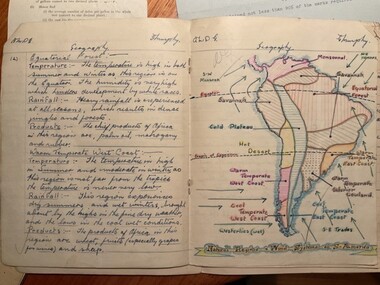 Geography
(a) Equatorial Forest
Temperature :- The temperature is high in both
summer and winter as this region is on
the Equator. Humidity is very high
which hinders development by white races.
Rainfall :- Heavy rainfall is experienced
at all seasons, which results in dense
jungles and forests.
Products :- The chief products of Africa
in this region are palm oil, mahogany
and rubber.
Warm Temperate West Coast.
Temperature :- The temperature is high
in summer and moderate in winter as
this region is not far from the tropics
the temperature is never very low.
Rainfall :- This region experiences
dry summers and wet winters, brought
about by the highs in the fine dry weather
and the lows in the cool wet conditions.
Products :- The products of Africa in this
region are wheat, fruits (especially grapes
for wines) and sheep.
Geography
Monsoonal
Savannah
Equatorial
Forest
Savannah
Cold Plateau
Hot
Desert
Tropic of Capricorn
Warm
Temperate
East Coast
Warm
Temperate
West Coast
Warm Temperate
Interior
Lowland
Cool
Temperate
West Coast
Cool
Temperate
East Coast
Westerlies (wet)
S-E Trades
Natural Regions & Wind Systems of S. America